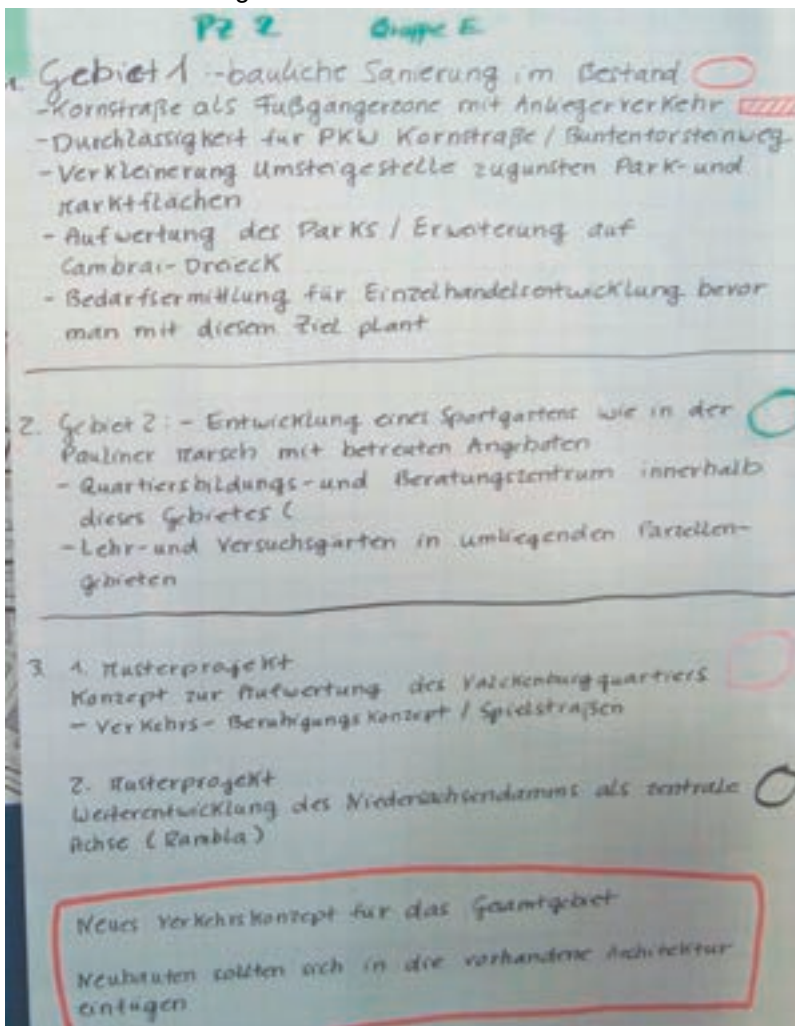 PZ 2 Gruppe E
1. Gebiet 1 - bauliche Sanierung im Bestand
- Kornstraße als Fußgängerzone mit Anliegerverkehr
- Durchlässigkeit für PKW Kornstraße / Buntentorsteinweg
- Verkleinerung Umsteigestelle zugunsten Park- und
Marktflächen
- Aufwertung des Parks / Erweiterung auf
Cambrai-Dreieck
- Bedarfsermittlung für Einzelhandelsentwicklung bevor
man mit diesem Ziel plant
2. Gebiet 2: - Entwicklung eines Sportgartens wie in der
Pauliner Marsch mit betreuten Angeboten
- Quartiersbildungs- und Beratungszentrum innerhalb
dieses Gebietes (
- Lehr- und Versuchsgärten in umliegenden Parzellen-
gebieten
3. 1. Musterprojekt
Konzept zur Aufwertung des Valckenburgquartiers
- Verkehrs-Beruhigungskonzept / Spielstraßen
2. Musterprojekt
Weiterentwicklung des Niedersachsendamms als zentrale
Achse (Rambla)
Neues Verkehrskonzept für das Gesamtgebiet
Neubauten sollten sich in die vorhandene Architektur
einfügen